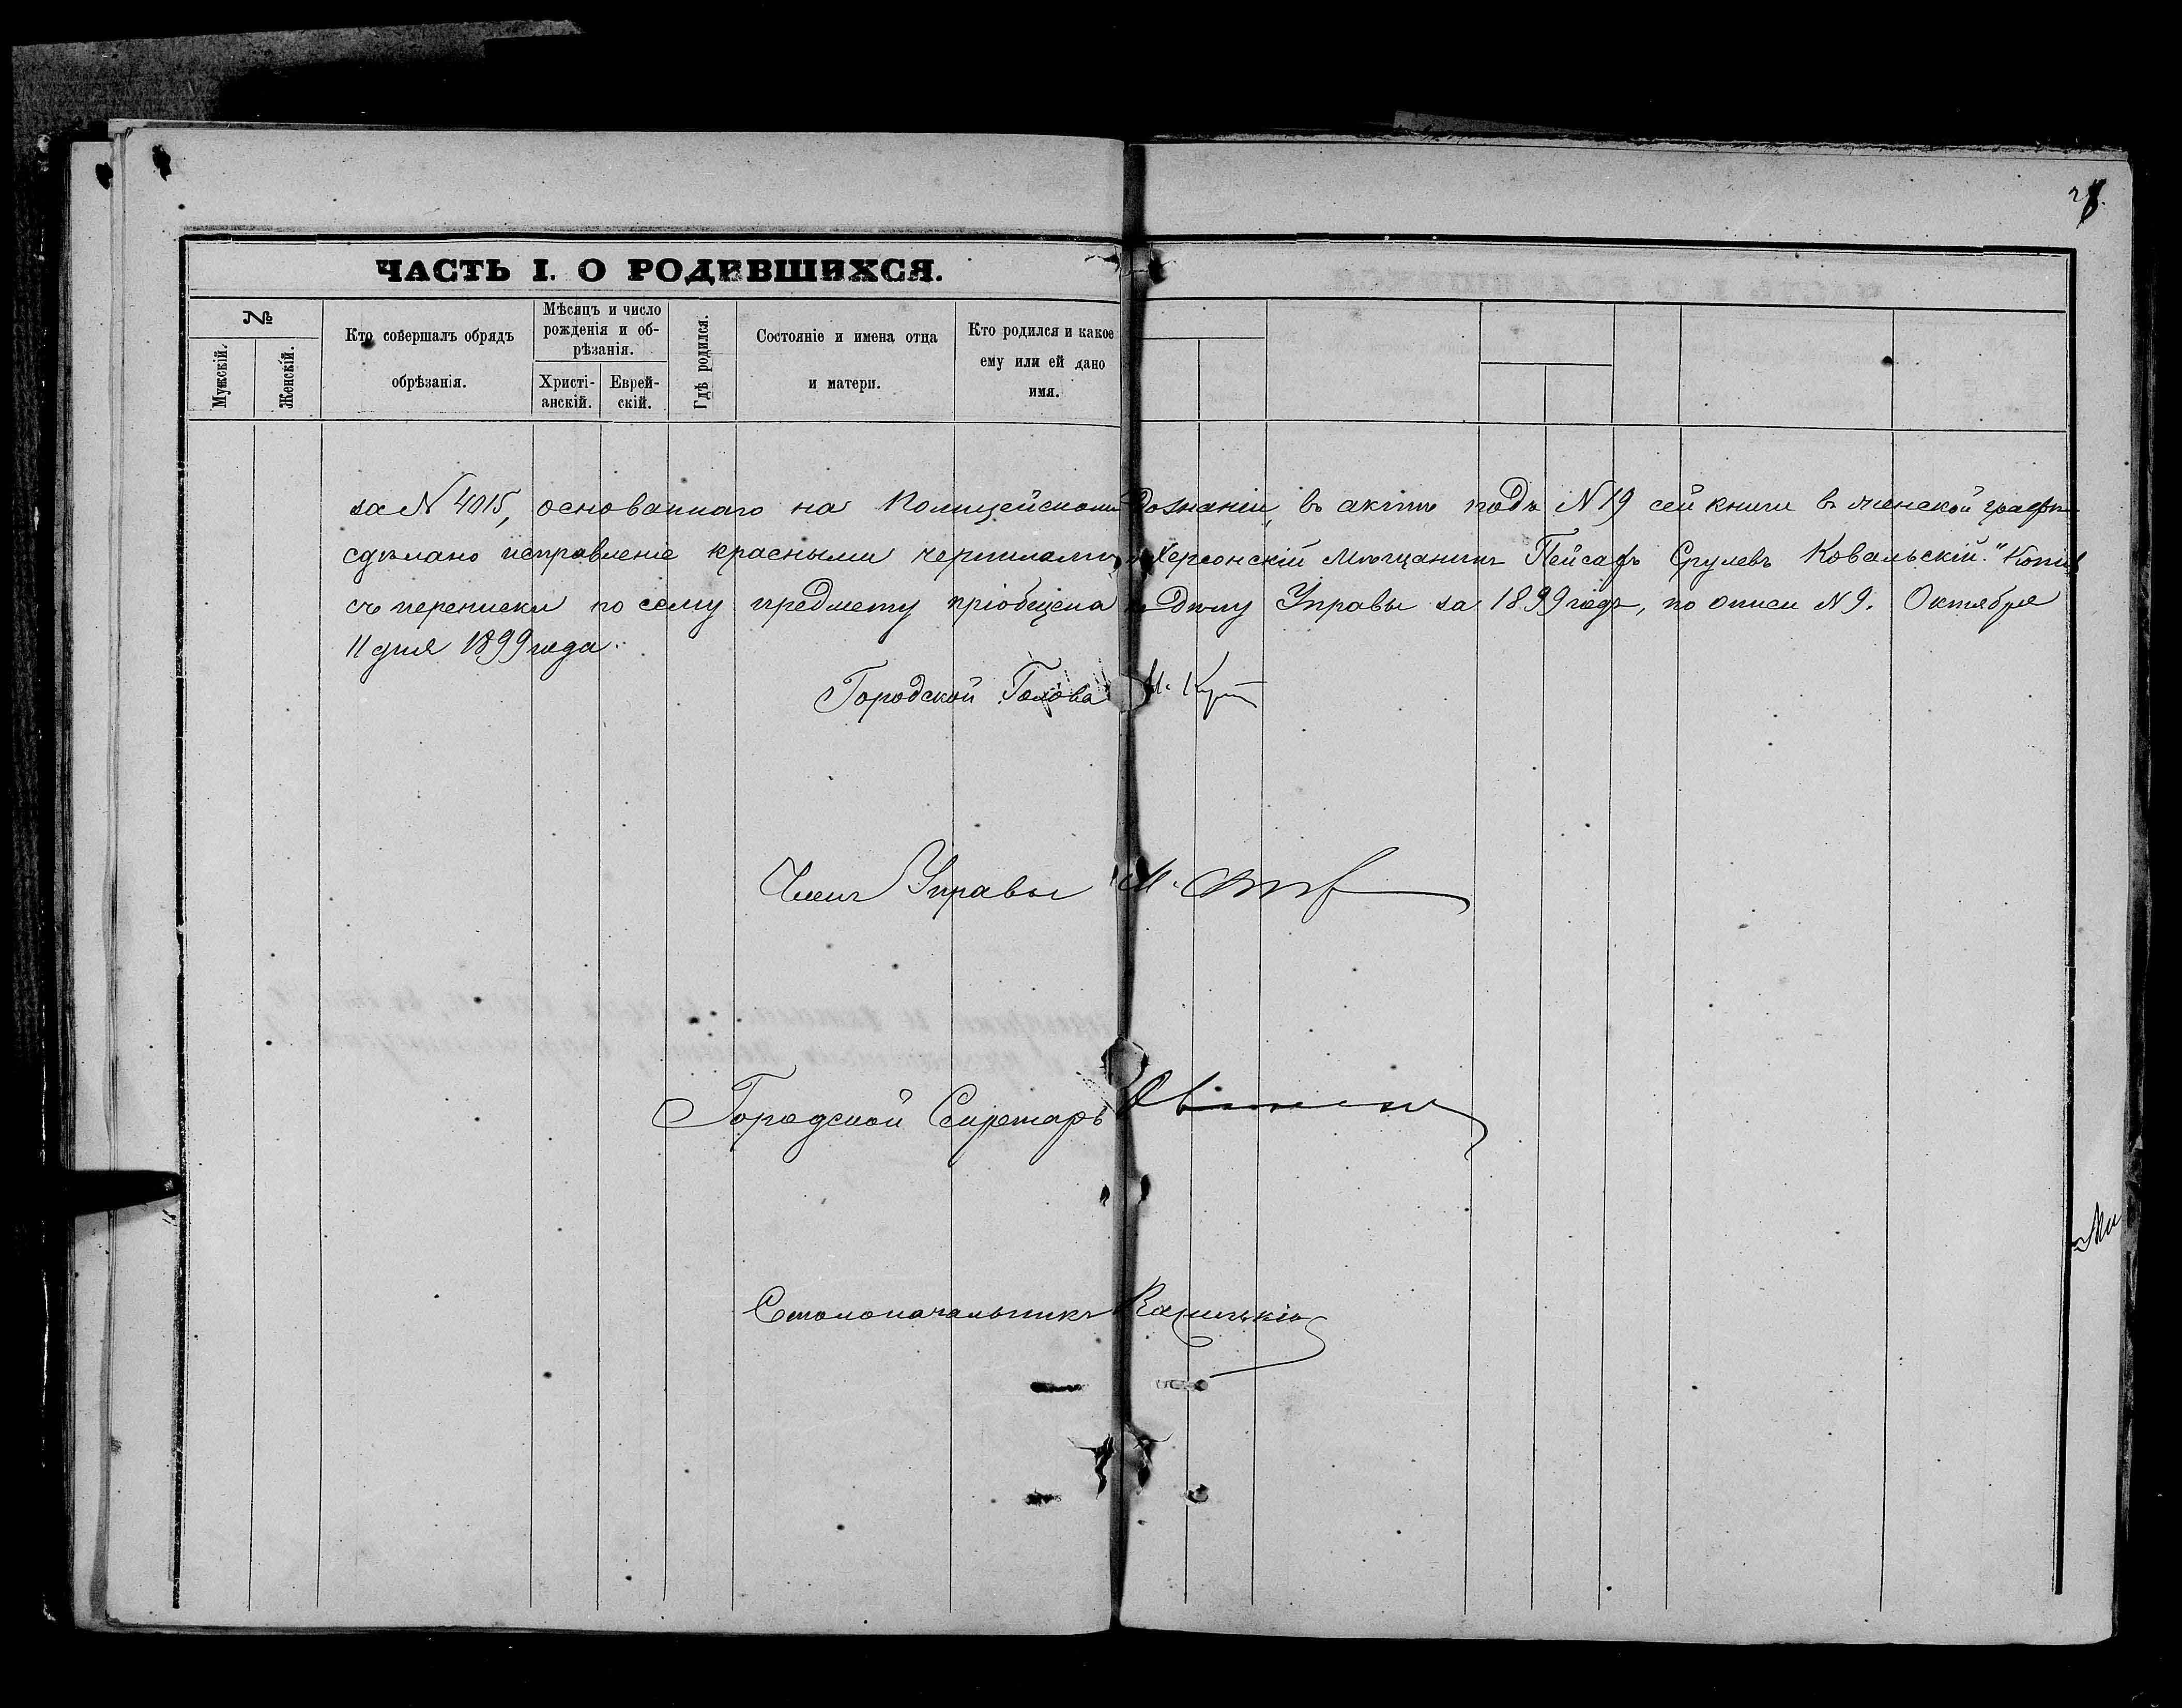 28.
ЧАСТЬ I. О РОДИВШИХСЯ.
№
Мужскій.
Женскій.
Кто совершалъ обрядъ
обрѣзанія.
Мѣсяцъ и число
рожденія и об-
рѣзанія.
Христі-
анскій.
Еврей-
скій.
Гдѣ родился.
Состояніе и имена отца
и матери.
Кто родился и какое
ему или ей дано
имя.
за N 4015, основаннаго на Полицейскомъ Дознаніи, въ актѣ подъ N 19 сей книги въ женской графѣ
сдѣлано исправленіе красными чернилами „Херсонскій Мѣщанинъ Пейсафъ Срулевъ Ковальскій." Копія
съ переписки по сему предмету пріобщена къ Дѣлу Управы за 1899 годъ, по описи N 9. Октября
11 дня 1899 года.
Городской Голова
Членъ Управы М.
Городской Секретарь
Столоначальникъ